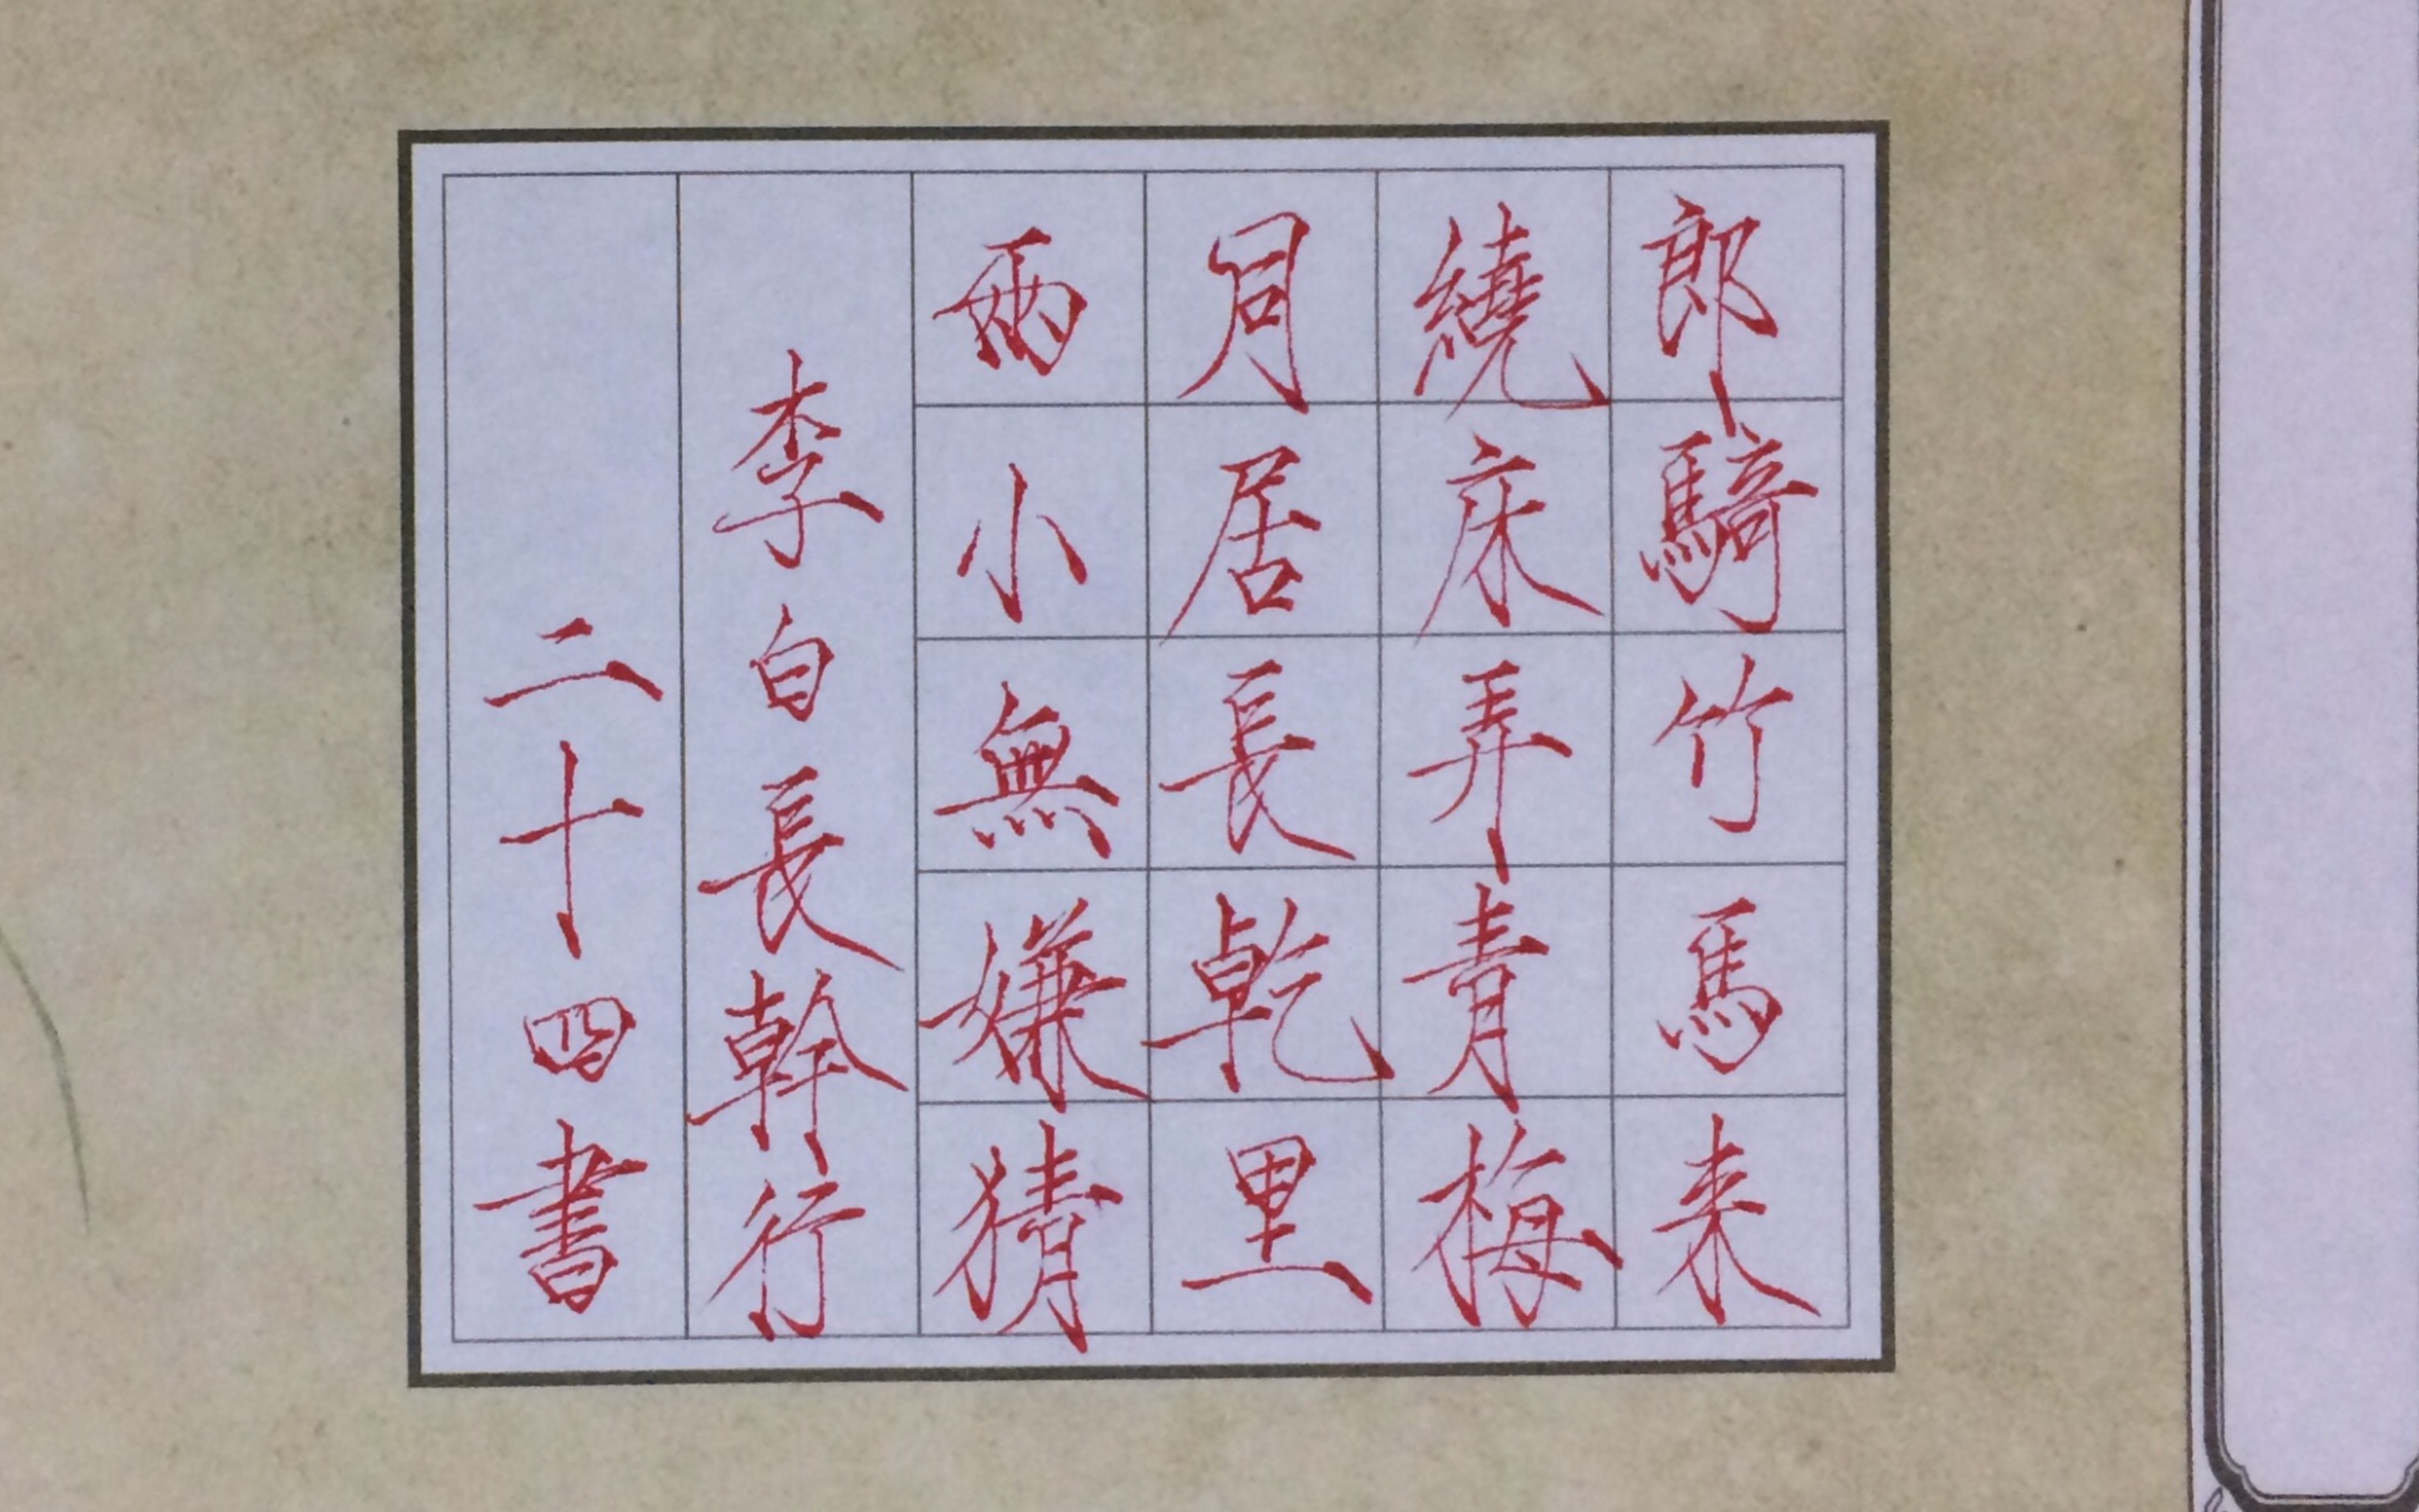 郎騎竹馬来
繞床弄青梅
同居長乾里
兩小無嫌猜
李白長幹行
二十四書